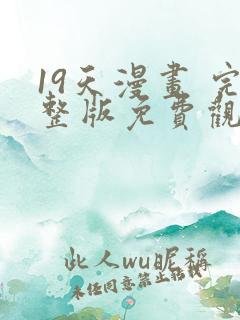 19天漫畫 完
整版免費觀
此人wu昵稱
未经同意禁止搭载